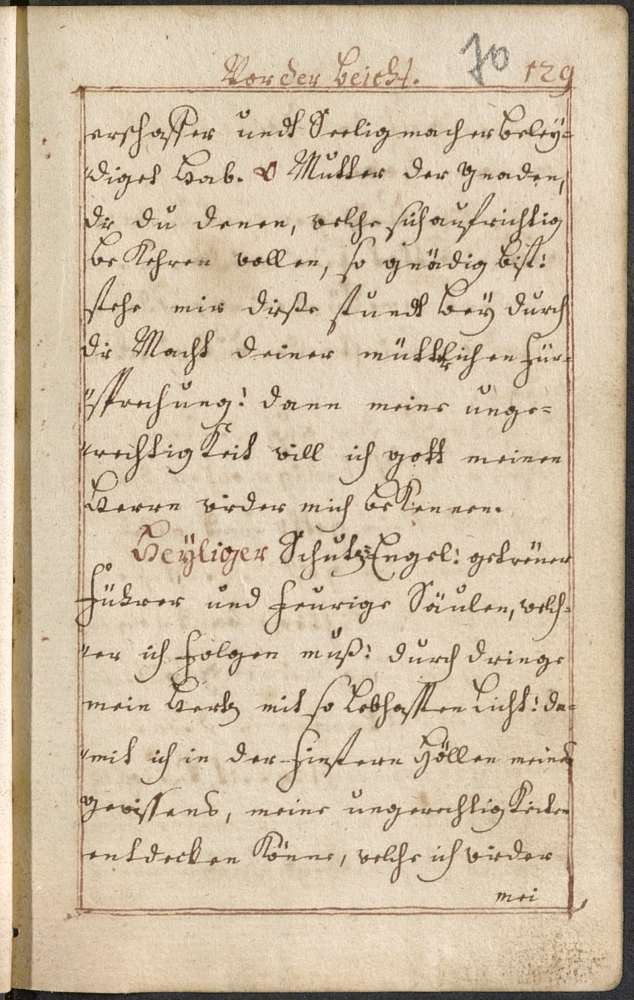 Vor der Beicht. 70 129
erschaffer undt Seeligmacher beley=
diget hab. O Mutter der gnaden,
die du denen, welche sich aufrichtig
bekehren wollen, so gnädig bist:
stehe mir diese stundt bey durch
die Macht deiner mütterlichen für=
sprechung: dann meine unge=
rechtigkeit will ich gott meinen
Herrn wieder mich bekennen.
Heyliger Schutz Engel: getreüer
führer und feurige Säulen, welch=
er ich folgen muß: durchdringe
mein Hertz mit so lebhafften licht: da=
mit ich in der finstern Höllen meines
gewissens, meine ungerechtigkeiten
entdecken könne, welche ich wieder
mei